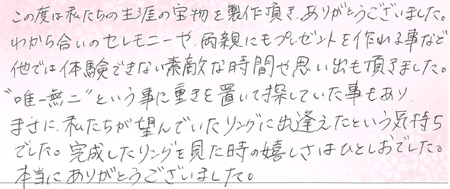 この度は私たちの生涯の宝物を製作頂き、ありがとうございました。
わかち合いのセレモニーや、両親にもプレゼントを作れる事など
他では体験できない素敵な時間や思い出も頂けました。
"唯一無二"という事に重きを置いて探していた事もあり
まさに、私たちが望んでいたリングに出逢えたという気持ち
でした。完成したリングを見た時の嬉しさはひとしおでした。
本当にありがとうございました。